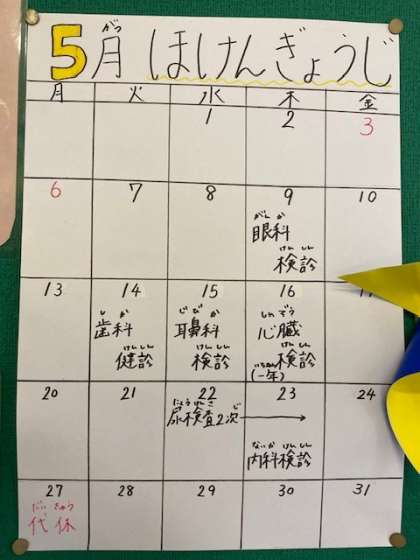 5月 ほけんぎょうじ
がつ
月 火 水 木 金
1 2 3
6 7 8 9 10
がんか
眼科
けんしん
検診
13 14 15 16 17
しか
歯科
けんしん
健診
じびか
耳鼻科
けんしん
検診
しんぞう
心臓
けんしん
検診
いちねん
(一年)
20 21 22 23 24
にょうけんさ じ
尿検査2次
ないか けんしん
内科検診
27 28 29 30 31
だいきゅう
代休